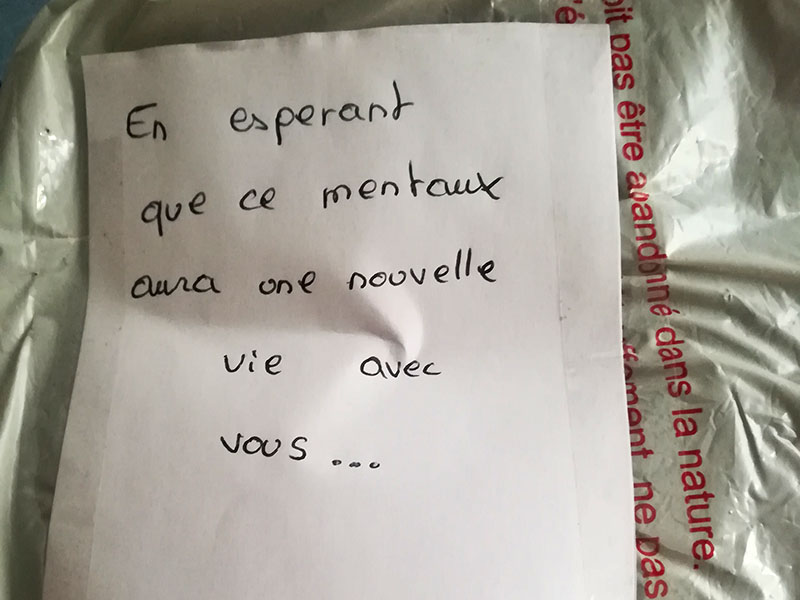 En esperant
que ce mentaux
aura une nouvelle
vie avec
vous ...
oit pas être abandonné dans la nature.
ne pas